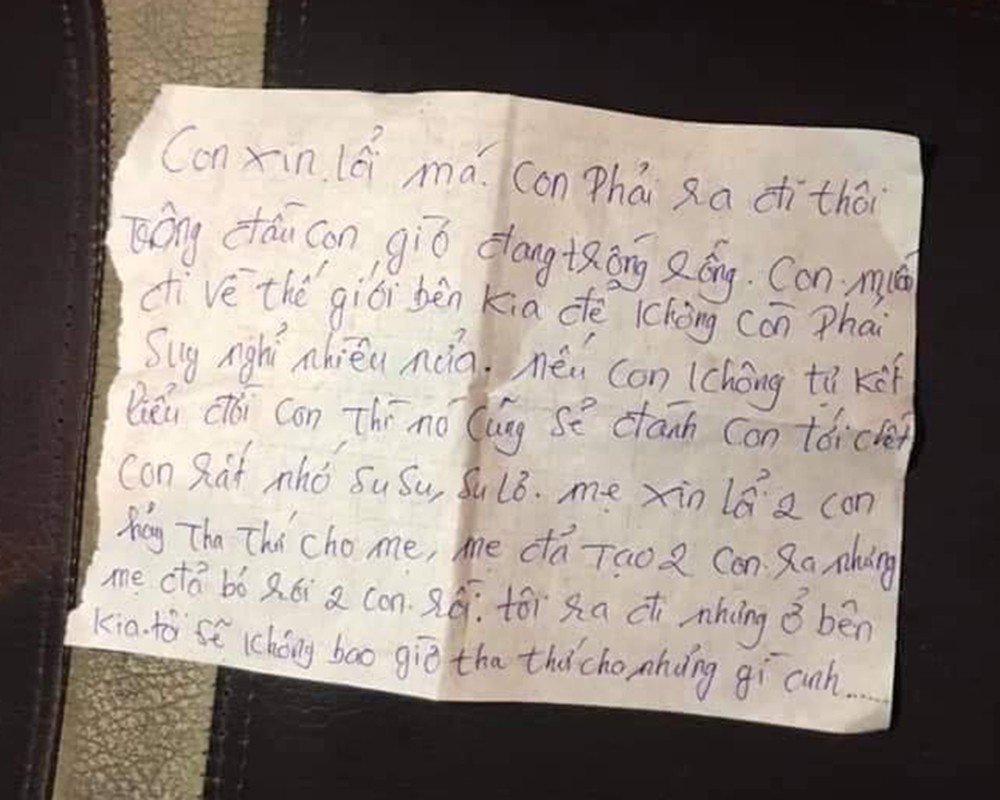 Con xin lổi má. Con Phải ra đi thôi
Trông đầu con giờ đang trống rổng. Con muốn
đi về thế giới bên kia để không còn Phải
Suy nghỉ nhiều nửa. nếu con không tự kết
liểu đời con Thì nó Cũng sẻ đánh con tới chết
con rất nhớ su su, su Lô. mẹ xin lổi 2 con
hảy Tha Thứ cho mẹ, mẹ đả Tạo 2 con ra nhưng
mẹ đả bỏ rơi 2 con rồi. tôi ra đi nhưng ở bên
kia. tôi sẽ không bao giờ tha thứ cho những gì anh......